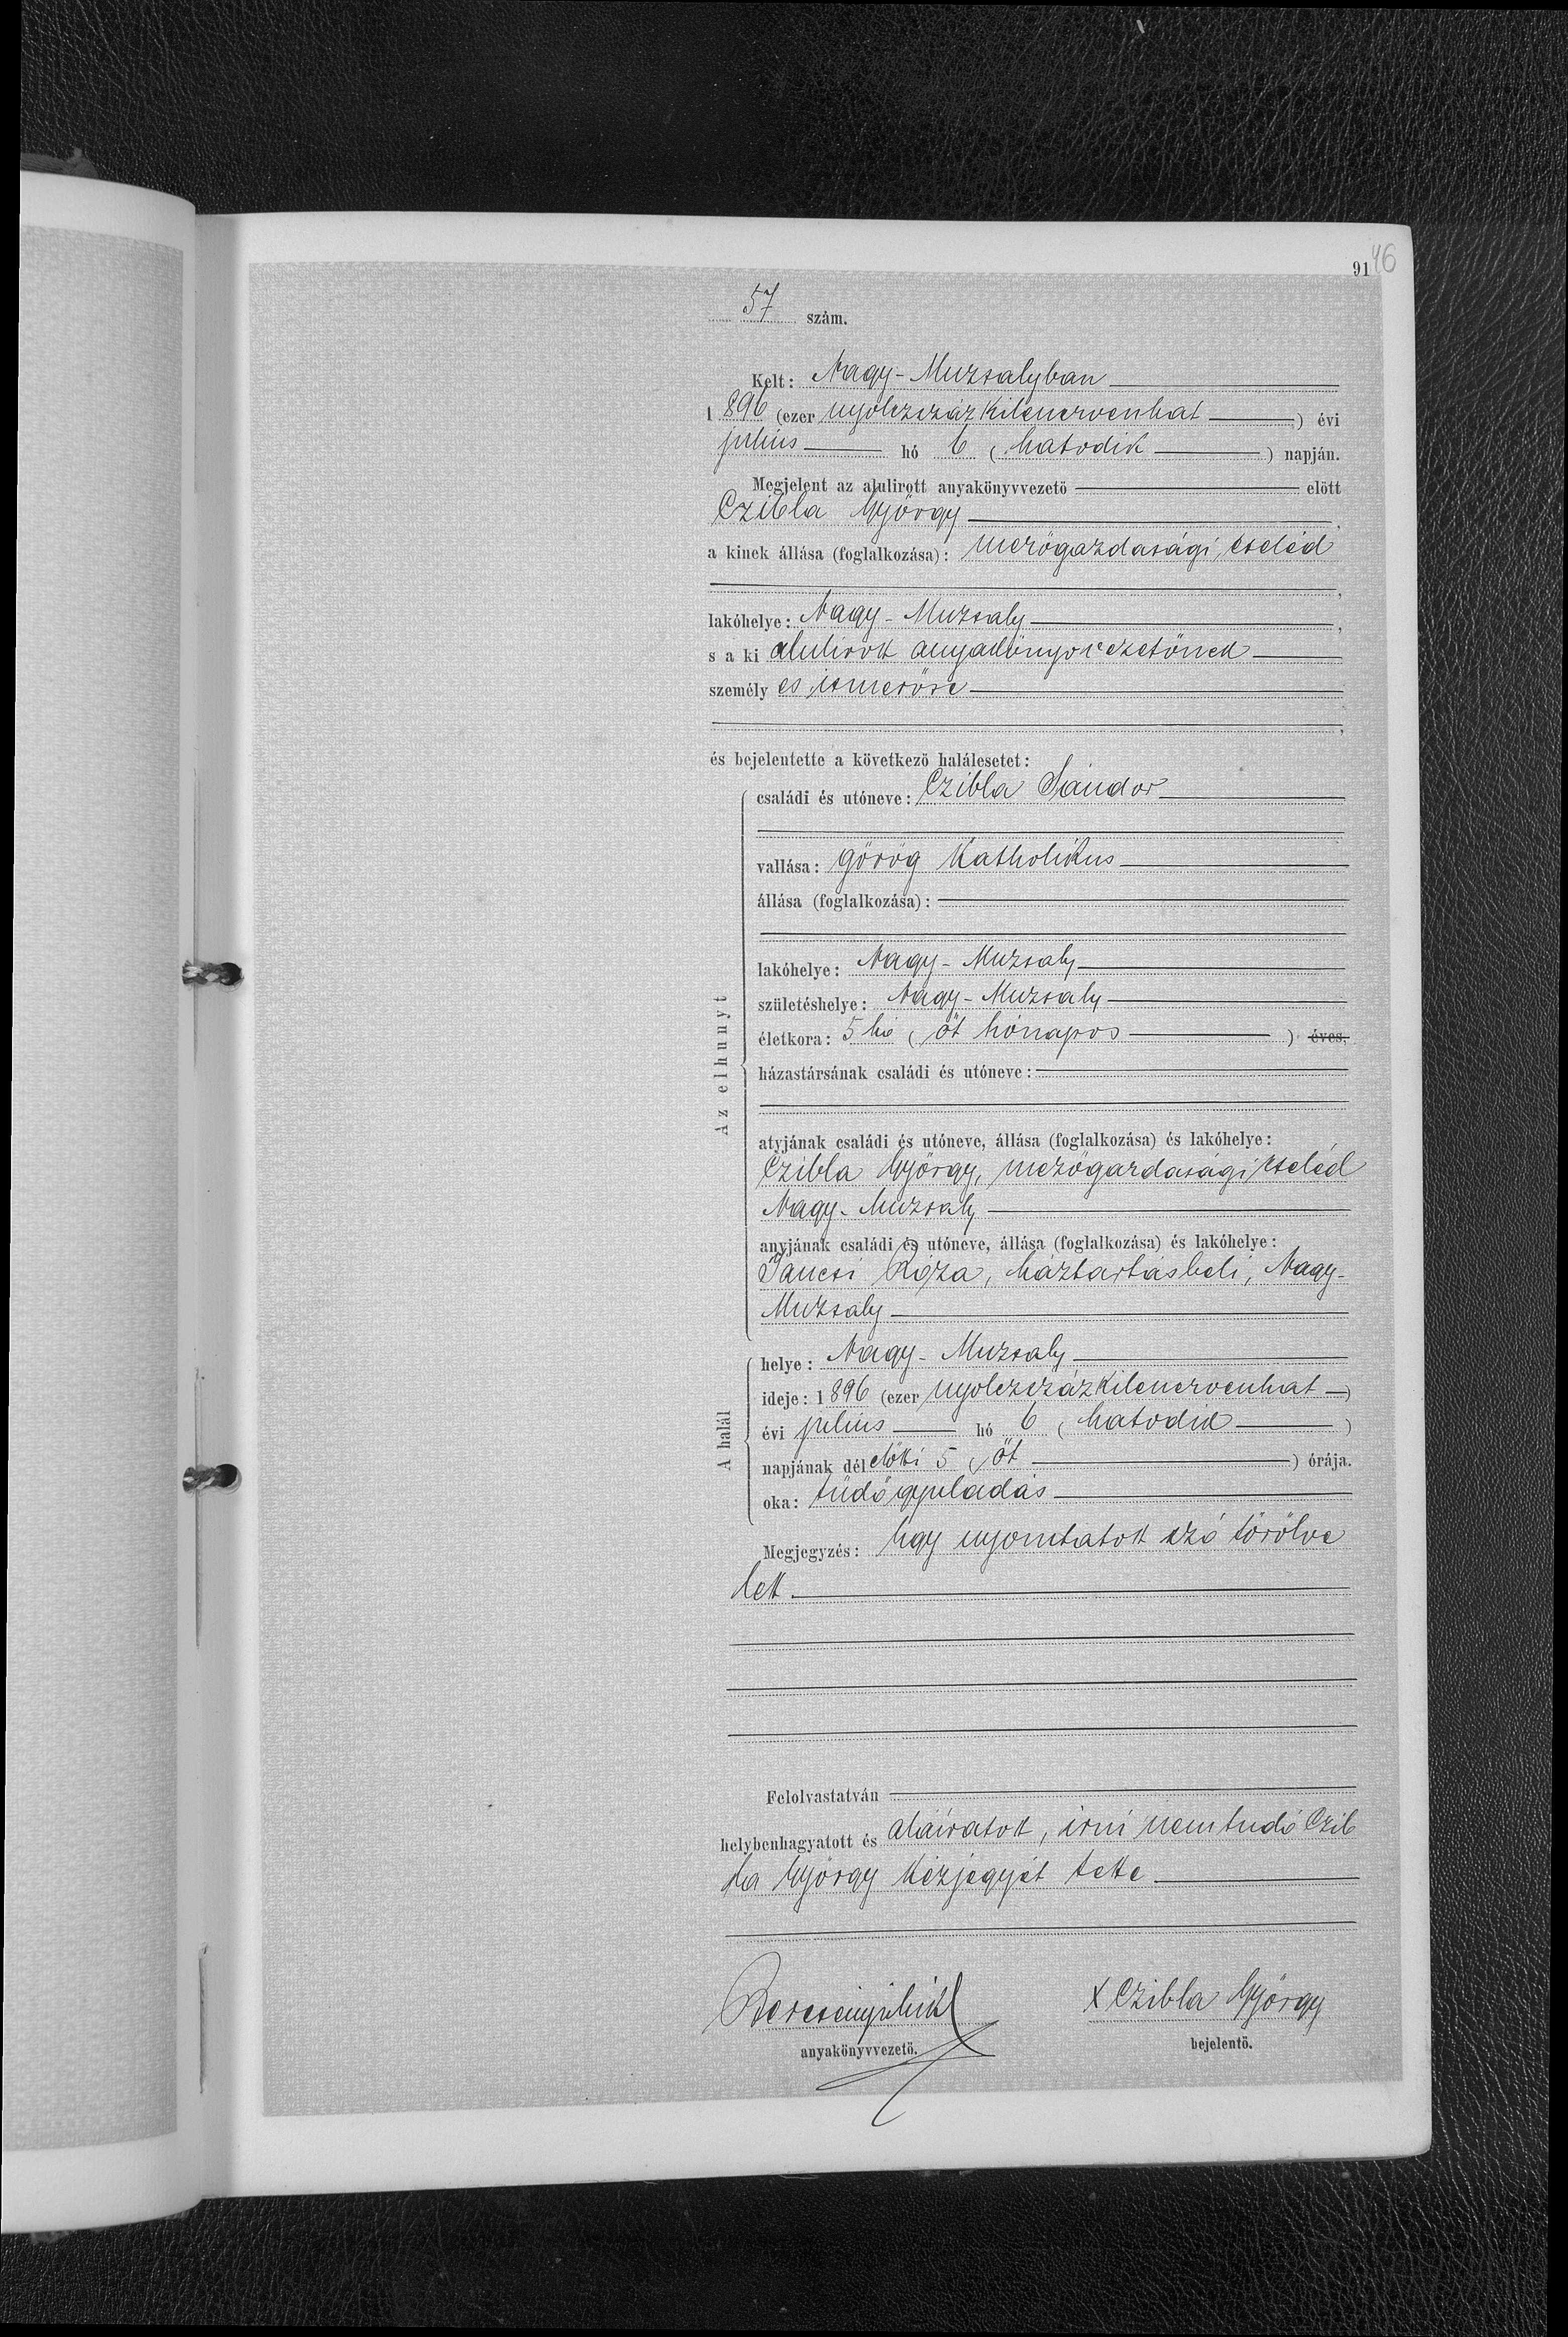 91 46
57 szám.
Kelt: Nagy-Muzsalyban
1896 (ezer nyolczszázkilenczvenhat) évi
julius hó 6 (hatodik) napján.
Megjelent az alulirott anyakönyvvezetö elött
Czibla György,
a kinek állása (foglalkozása): mezőgazdasági cseléd
,
lakóhelye: Nagy-Muzsaly,
s a ki alulirott anyakönyvvezetőnek
személyes ismerőse
,
és bejelentette a következö halálesetet:
Az elhunyt
családi és utóneve: Czibla Sándor
vallása: görög katholikus
állása (foglalkozása):
lakóhelye: Nagy-Muzsaly
születéshelye: Nagy-Muzsaly
életkora: 5 hó (öt hónapos) éves,
házastársának családi és utóneve:
atyjának családi és utóneve, állása (foglalkozása) és lakóhelye:
Czibla György, mezőgazdasági cseléd
Nagy-Muzsaly
anyjának családi és utóneve, állása (foglalkozása) és lakóhelye:
Jancsi Róza, háztartásbeli, Nagy-
Muzsaly
A halál
helye: Nagy-Muzsaly
ideje: 1896 (ezer nyolczszázkilenczvenhat)
évi julius hó 6 (hatodik)
napjának délelőtti 5 (öt) órája.
oka: tüdőgyuladás
Megjegyzés: Egy nyomtatott szó törölve
lett.
Felolvastatván
helybenhagyatott és aláiratott, irni nem tudó Czib
la György kézjegyét tette
X Czibla György
anyakönyvvezetö.
bejelentö.